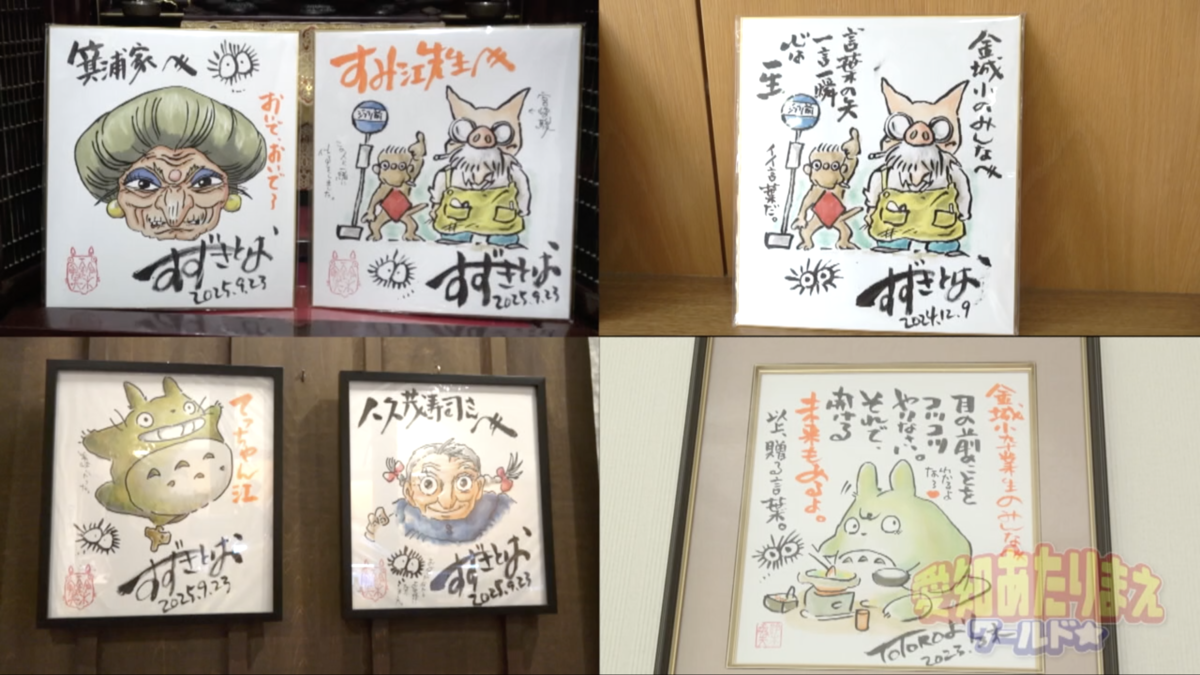 箕浦家へ
おいで、おいで
すずきとしお
2025.9.23
すみ江先生へ
すずきとしお
2025.9.23
金城小のみんなへ
言葉の矢
一言一瞬
心は
一生
イイ言葉だ。
すずきとしお
2024.12.9
てっちゃん江
すずきとしお
2025.9.23
久茂寿司さんへ
すずきとしお
2025.9.23
金城小卒業生のみんな
目の前のことを
コツコツ
やりなさい。
それで、
開ける
未来もあるよ。
以上、贈る言葉。
わかるよ
なぁ
TOTOROより
愛知あたりまえ
ワールド☆